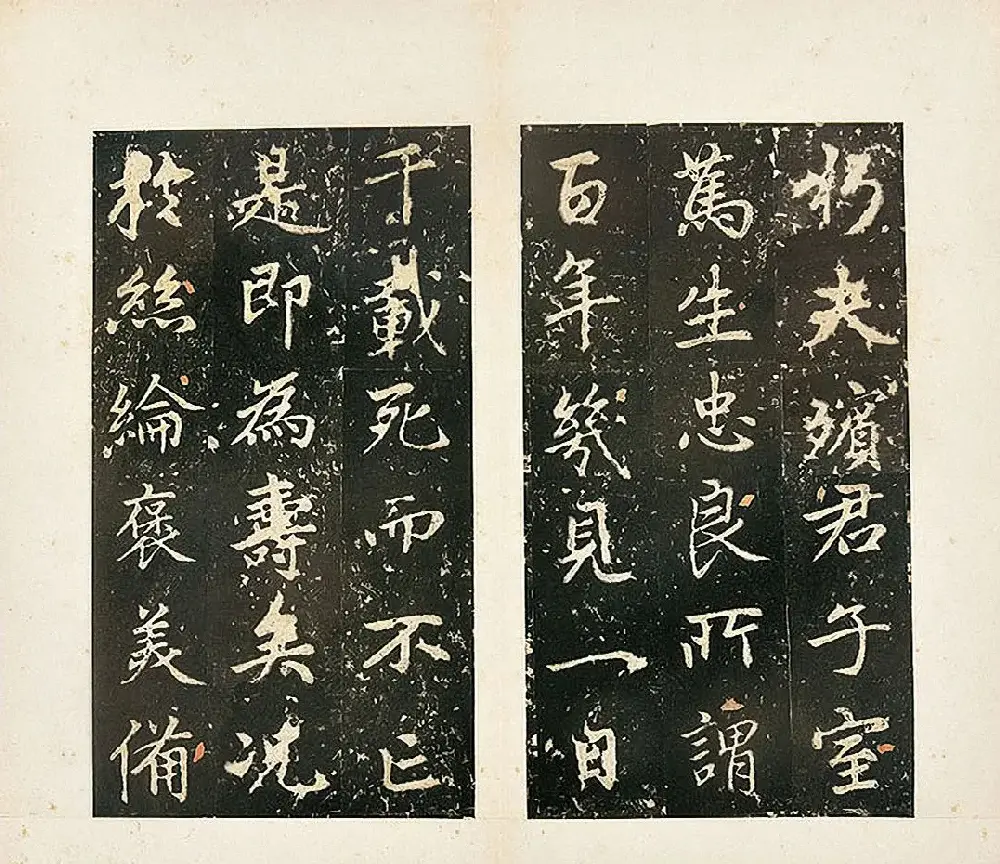 朽夫殯君子室
篤生忠良所謂
百年幾見一自
千載死而不亡
是即為壽矣況
於絲綸褒美備